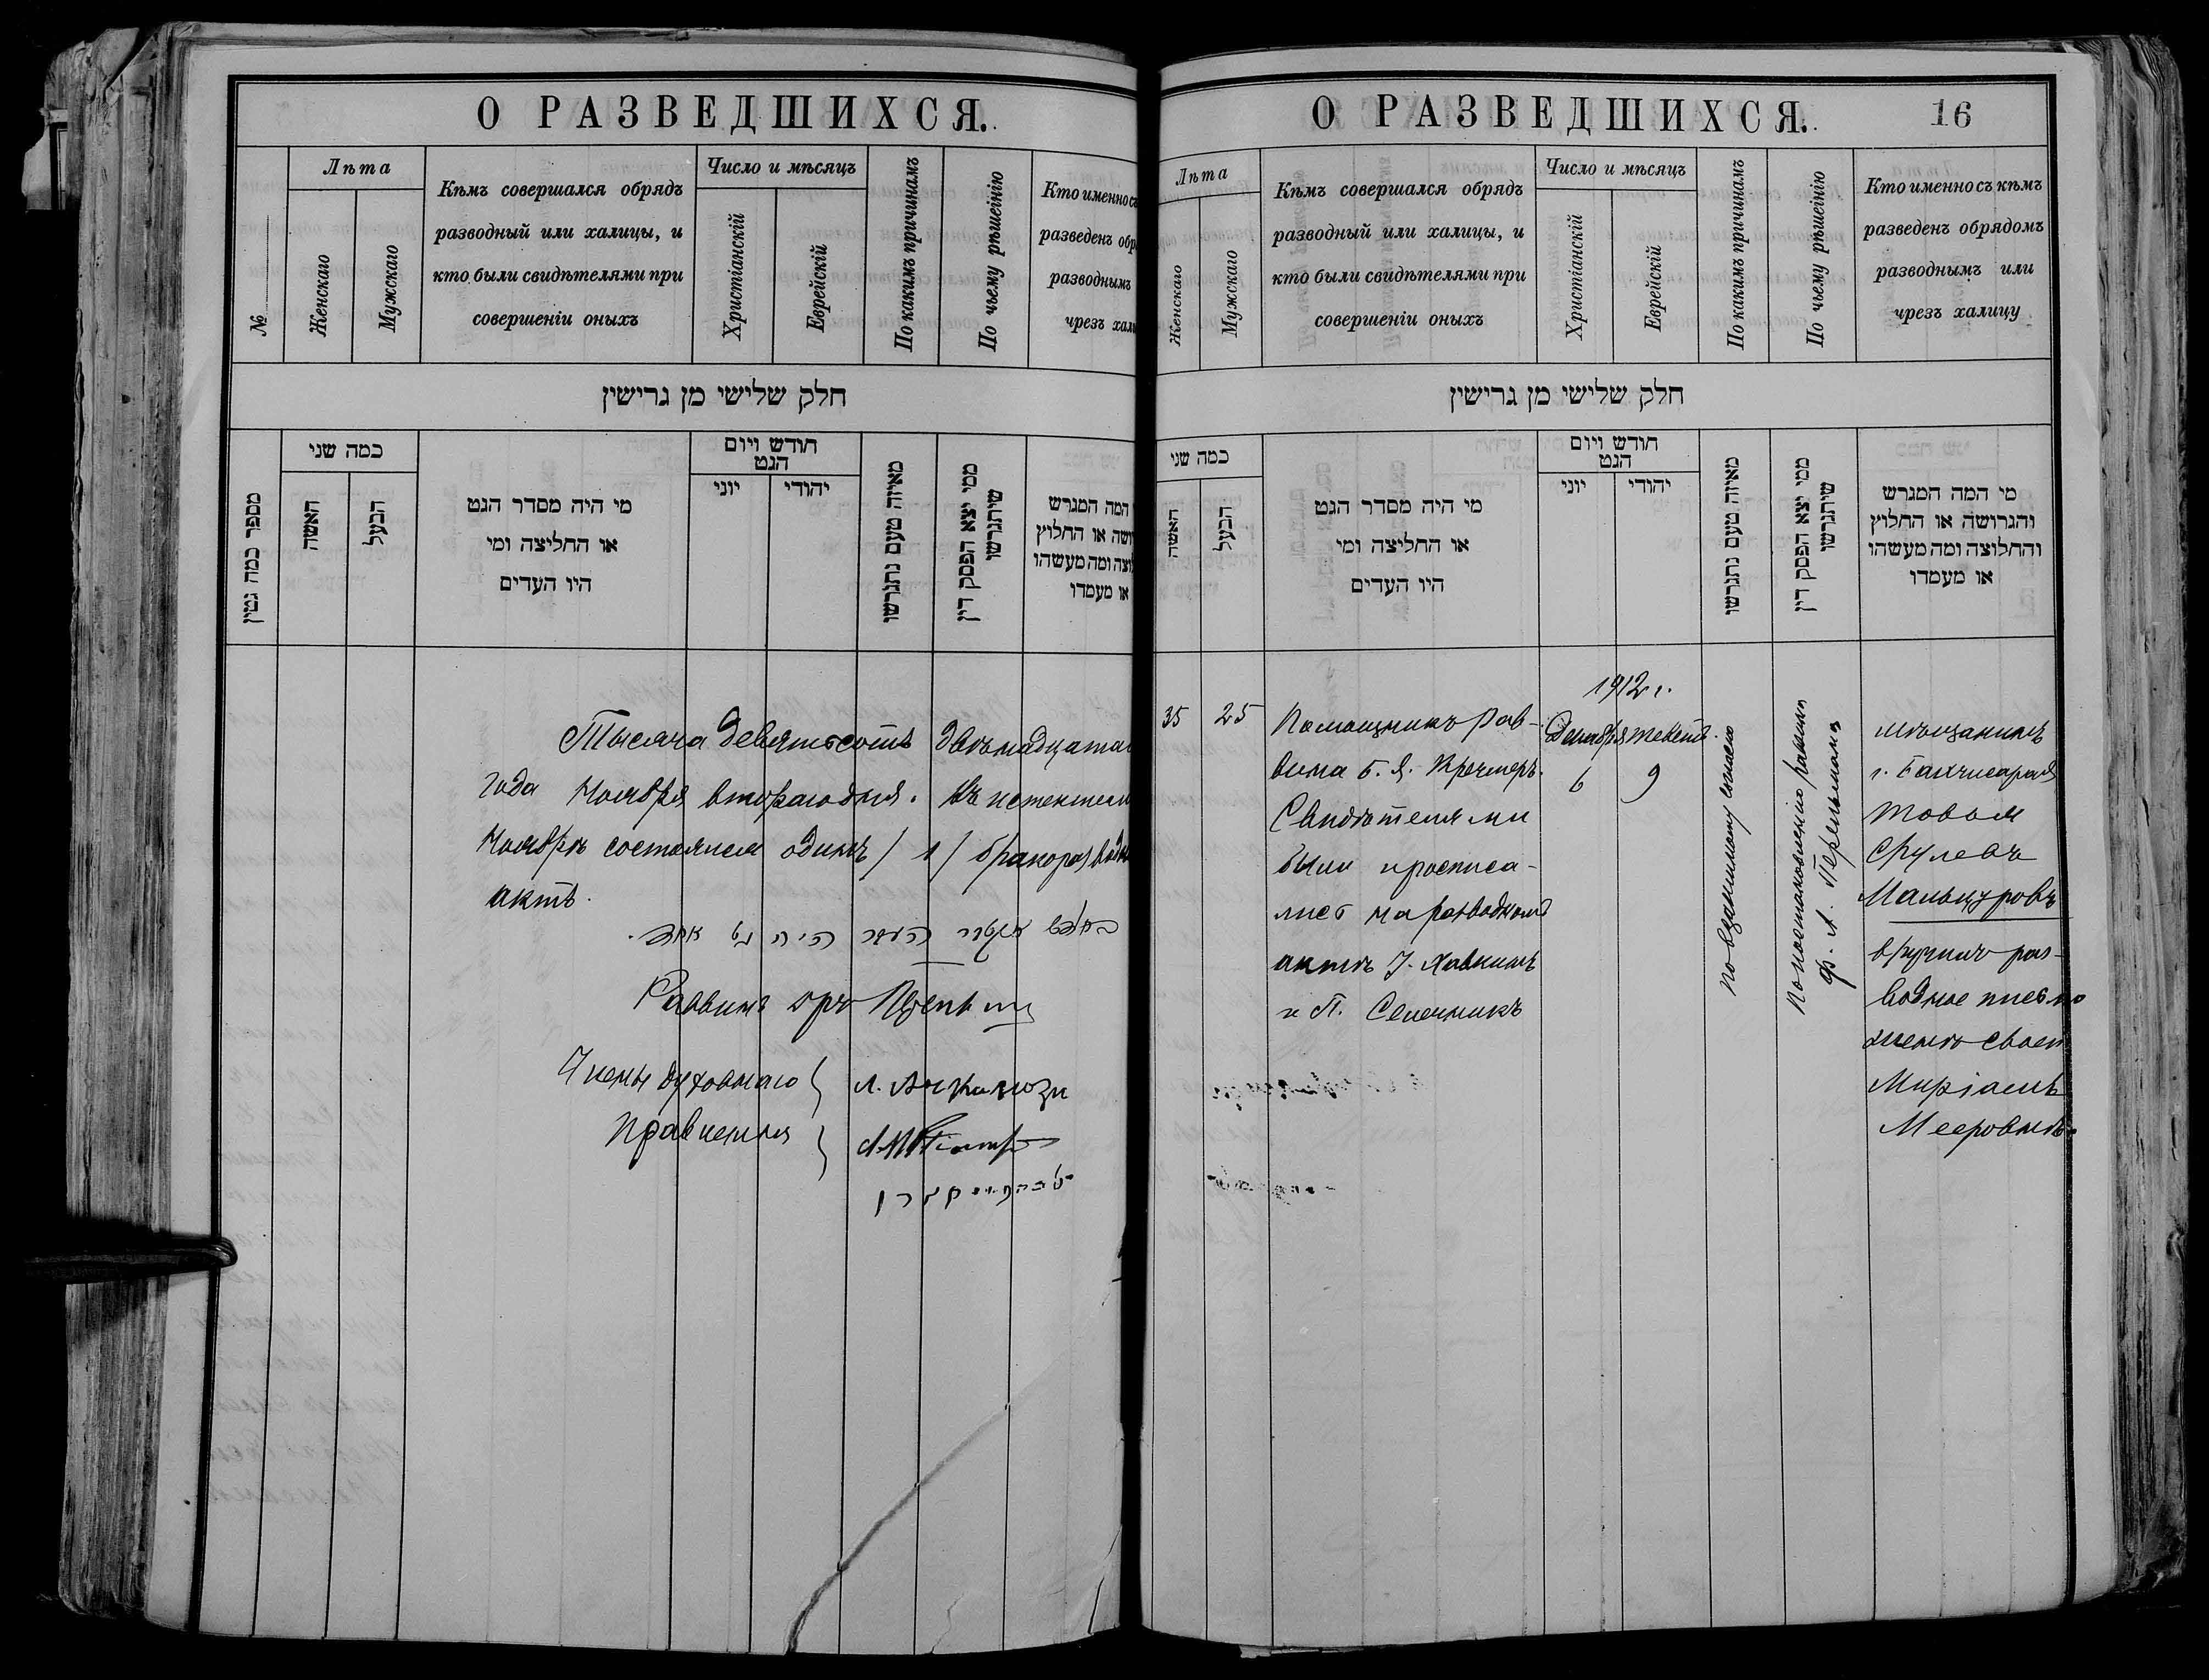 О РАЗВЕДШИХСЯ.
№
Лѣта
Женскаго
Мужскаго
Кѣмъ совершался обрядъ
разводный или халицы, и
кто были свидѣтелями при
совершеніи оныхъ
Число и мѣсяцъ
Христіанскій
Еврейскій
По какимъ причинамъ
По чьему рѣшенію
Кто именно съ
разведенъ обр
разводнымъ
чрезъ хал
חלק שלישי מן גרישין
מספר כמה גטין
כמה שני
האשה
הבעל
מי היה מסדר הגט
או החליצה ומי
היו העדים
חודש ויום
הגט
יוני
יהודי
מאיזה טעם נתגרשו
ממי יצא הפסק דין
שיתגרשו
המה המגרש
ושה או החלוץ
וצה ומה מעשהו
או מעמדו
Тысяча девятьсотъ двѣнадцата
года Ноября втораго дня. Въ истекшем
Ноябрѣ состоялся одинъ / 1 / бракоразводн
актъ.
Раввинъ
Члены духовнаго
Правленія
О РАЗВЕДШИХСЯ.
16
Лѣта
Женскаго
Мужскаго
Кѣмъ совершался обрядъ
разводный или халицы, и
кто были свидѣтелями при
совершеніи оныхъ
Число и мѣсяцъ
Христіанскій
Еврейскій
По какимъ причинамъ
По чьему рѣшенію
Кто именно съ кѣмъ
разведенъ обрядомъ
разводнымъ или
чрезъ халицу
חלק שלישי מן גרישין
כמה שני
האשה
הבעל
מי היה מסדר הגט
או החליצה ומי
היו העדים
חודש ויום
הגט
יוני
יהודי
מאיזה טעם נתגרשו
ממי יצא הפסק דין
שיתגרשו
מי המה המגרש
והגרושה או החלוץ
והחלוצה ומה מעשהו
או מעמדו
35
25
Помощникъ рав-
вина Б. Я. Кречмеръ.
Свидѣтелями
были
на разводномъ
актѣ І. Хавкинъ
и П.
1912 г.
Декабря Теветъ
6 9
По взаимному согласію
По постановленію раввина
Ф. Л. Перельмана
мѣщанинъ
г. Бахчисарая
Товья
Срулевъ
Мангуровъ
вручилъ раз-
водное письмо
женѣ своей
Миріамъ
Мееровнѣ.